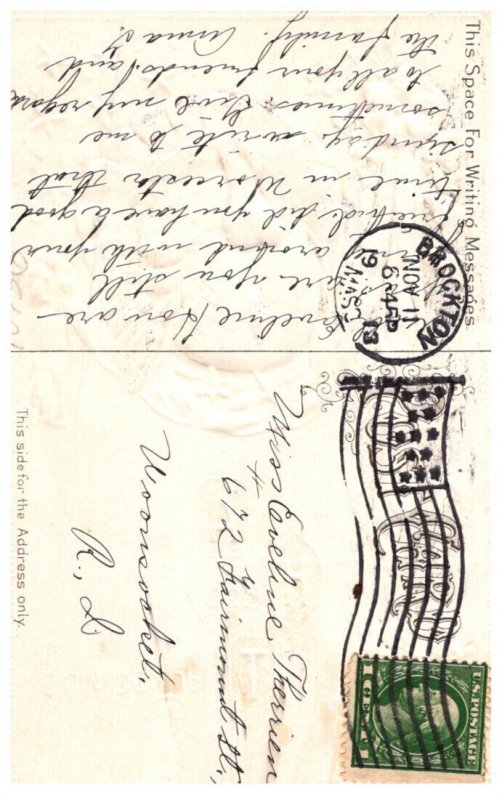 This Space For Writing Messages
Eveline How are
are you still
around with your
did you have a good
time in Worcester that
sunday write to me
sometimes. Give my regard
to all your friends and
the family. Anna
BROCKTON
NOV 11
6:45P
1913
MASS.
U.S. POSTAGE
1 CENT 1
Miss Eveline Therrien
# 672 Fairmount St.,
Woonsocket,
R. I
This side for the Address only.